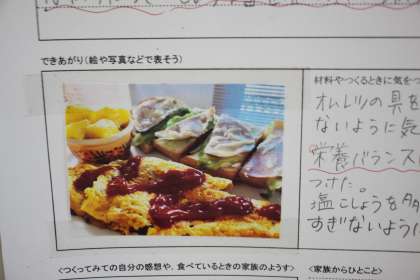 できあがり(絵や写真などで表そう)
材料やつくるときに気をつ
オムレツの具を
ないように気
栄養バランス
つけた。
塩こしょうを多
すぎないように
<つくってみての自分の感想や,食べているときの家族のようす>
<家族からひとこと>